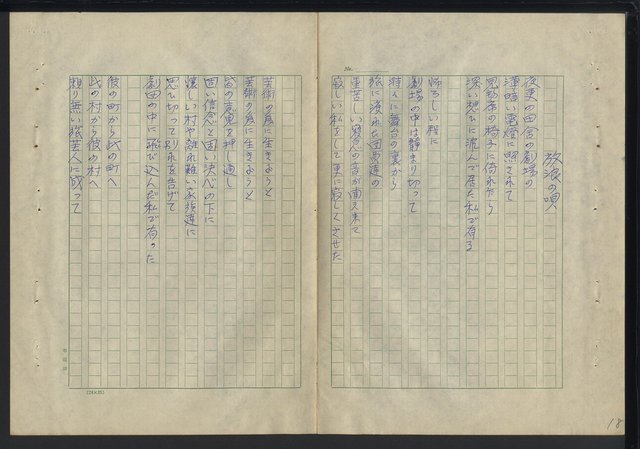 放浪の唄
夜更の田舎の劇場の
薄暗い電燈に照されて
見物席の椅子に倚れ乍ら
深い想ひに沈んで居た私で有る
怪しい程に
劇場の中は静まり切って
時々に舞台の裏から
旅に疲れた団員達の
重苦しい寝息の音が聞え来て
寂しい私をして更に寂しくさせた
芸術の為に生きようと
芸術の為に生きようと
皆の意見を押し通し
固い信念と固い決心の下に
懐しい村や離れ難い家族達に
思ひ切って別れを告げて
劇団の中に飛び込んだ私で有った
彼の町から此の町へ
此の村から彼の村へ
頼り無い旅芸人に成って
No.
(24×25)
18